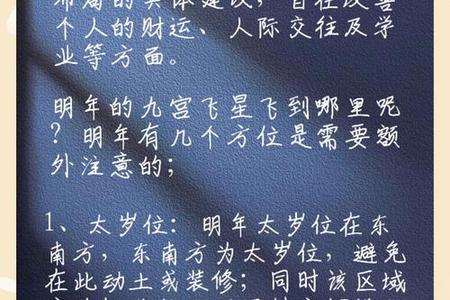 布局的具体建议，旨在改善
个人的财运、人际交往及学
业等方面。
明年的九宫飞星飞到哪里呢
？明年有几个方位是需要额
外注意的；
1、太岁位：明年太岁位在东
南方，东南方为太岁位，避免
在此动土或装修；同时该区域